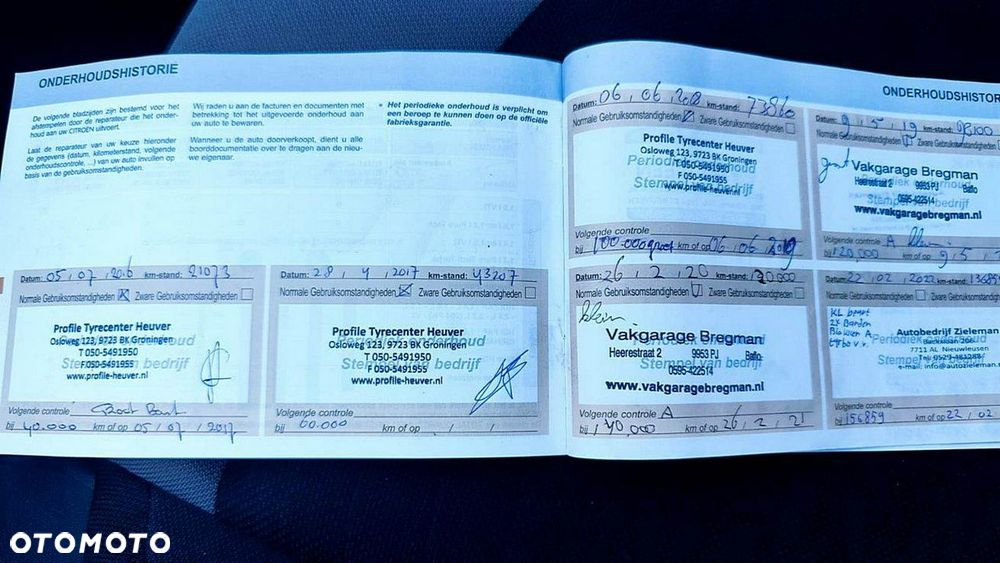 ONDERHOUDSHISTORIE
De volgende bladzijden zijn bestemd voor het
afstempelen door de reparateur die het onder-
houd aan uw CITROËN uitvoert.
Laat de reparateur van uw keuze hieronder
de gegevens (datum, kilometerstand, volgende
onderhoudscontrole, ...) van uw auto invullen op
basis van de gebruiksomstandigheden.
Wij raden u aan de facturen en documenten met
betrekking tot het uitgevoerde onderhoud aan
uw auto te bewaren.
Wanneer u de auto doorverkoopt, dient u alle
boorddocumentatie over te dragen aan de nieu-
we eigenaar.
• Het periodieke onderhoud is verplicht om
een beroep te kunnen doen op de officiële
fabrieksgarantie.
Datum: 05 / 07 / 2016 km-stand: 21073
Normale Gebruiksomstandigheden Zware Gebruiksomstandigheden
Profile Tyrecenter Heuver
Osloweg 123, 9723 BK Groningen
T 050-5491950
F 050-5491955
www.profile-heuver.nl
Stempel van bedrijf
Volgende controle
bij 40.000 km of op 05 / 07 / 2017
Datum: 28 / 4 / 2017 km-stand: 43207
Normale Gebruiksomstandigheden Zware Gebruiksomstandigheden
Profile Tyrecenter Heuver
Osloweg 123, 9723 BK Groningen
Periodieke onderhoud
T 050-5491950
F 050-5491955
Stempel van bedrijf
www.profile-heuver.nl
Volgende controle
bij 60.000 km of op / /
ONDERHOUDSHISTOR
Datum: 06 / 06 / km-stand: 73860
Normale Gebruiksomstandigheden Zware Gebruiksomstandigheden
Profile Tyrecenter Heuver
Osloweg 123, 9723 BK Groningen
T 050-5491950
F 050-5491955
www.profile-heuver.nl
Stempel van bedrijf
Volgende controle
bij 100.000 km of op 06 / 06 / 2019
Datum: 9 / 5 / 19 km-stand:
Normale Gebruiksomstandigheden Zware Gebruiksomstandighede
groot
Vakgarage Bregman
Heerestraat 2 9953 PJ Baflo
0595-422514
Stempel van bedrijf
www.vakgaragebregman.nl
Volgende controle A klein
bij 120.000 km of op 9 / 5 /
Datum: 26 / 2 / 20 km-stand:
Normale Gebruiksomstandigheden Zware Gebruiksomstandigheden
klein
Vakgarage Bregman
Heerestraat 2 9953 PJ Baflo
0595-422514
Stempel van bedrijf
www.vakgaragebregman.nl
Volgende controle A
bij 140.000 km of op 26 / 2 / 21
Datum: 22 / 02 / 2022 km-stand:
Normale Gebruiksomstandigheden Zware Gebruiksomstandig
KL beurt
2x Banden
Autobedrijf Zieleman
7711 AL Nieuwleusen
Stempel van bedrijf
Tel 0529-481288
e-mail: info@autozieleman
Volgende controle
bij 156859 km of op 22 / 02
OTOMOTO